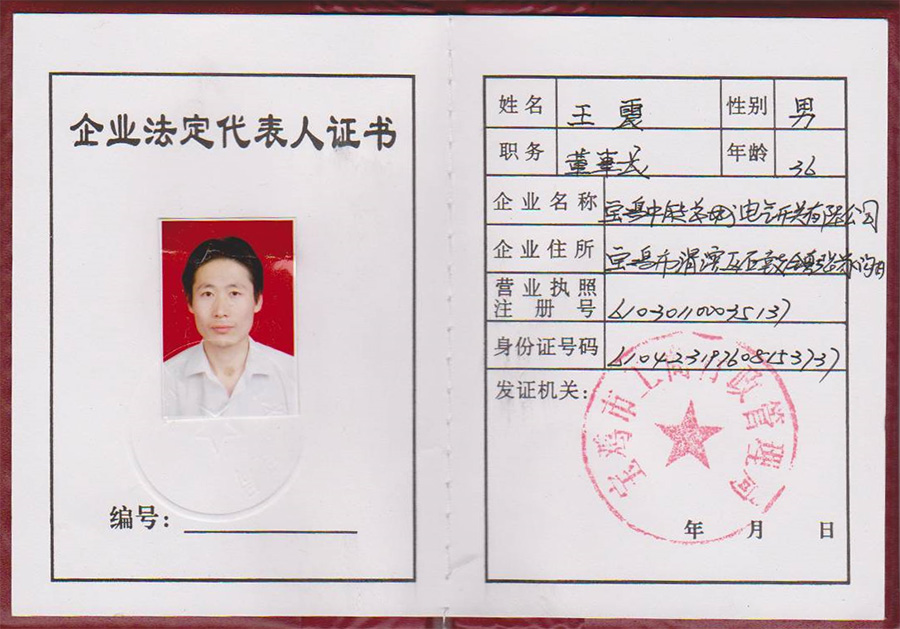 企业法定代表人证书
编号：
姓名 王震 性别 男
职务 董事长 年龄 36
企业名称 宝鸡中 电气开关有限公司
企业住所 宝鸡市渭滨区石鼓镇
营业执照
注册号 610301100035137
身份证号码 610423197608153737
发证机关：
宝鸡市工商行政管理局
年 月 日